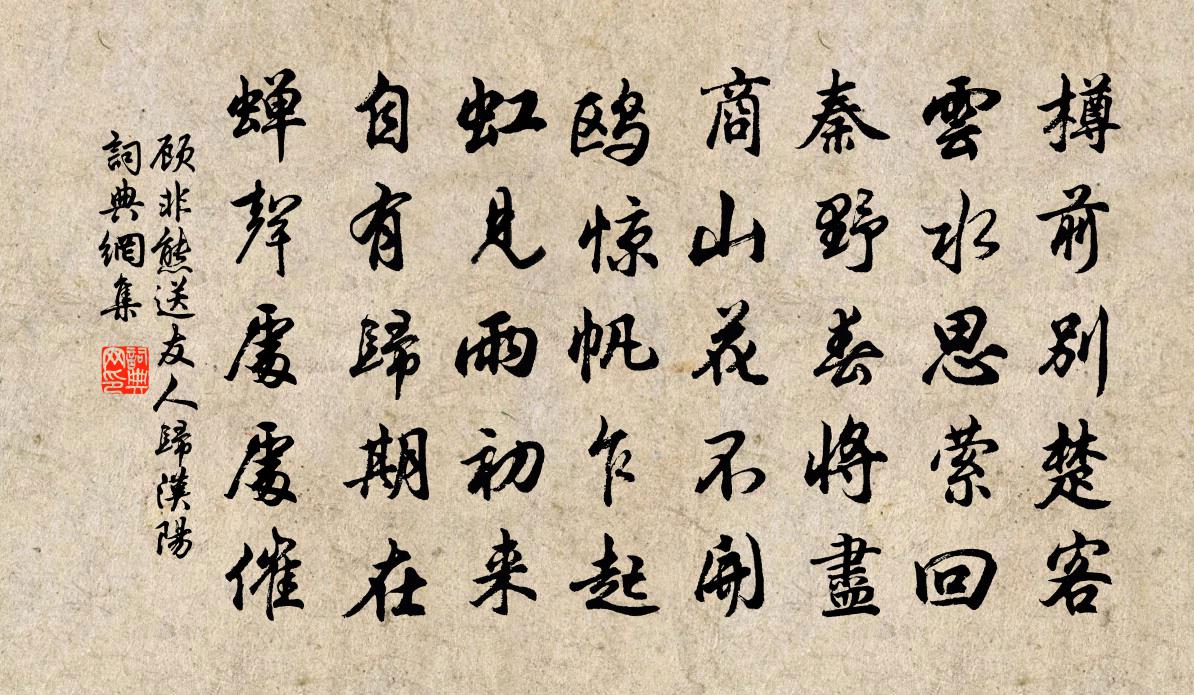 樽前别楚客
雲水思萦回
秦野春將盡
商山花不開
鸥惊帆乍起
虹見雨初来
自有歸期在
蝉聲處處催
顾非熊送友人歸漢陽
詞典網集
詞典网印